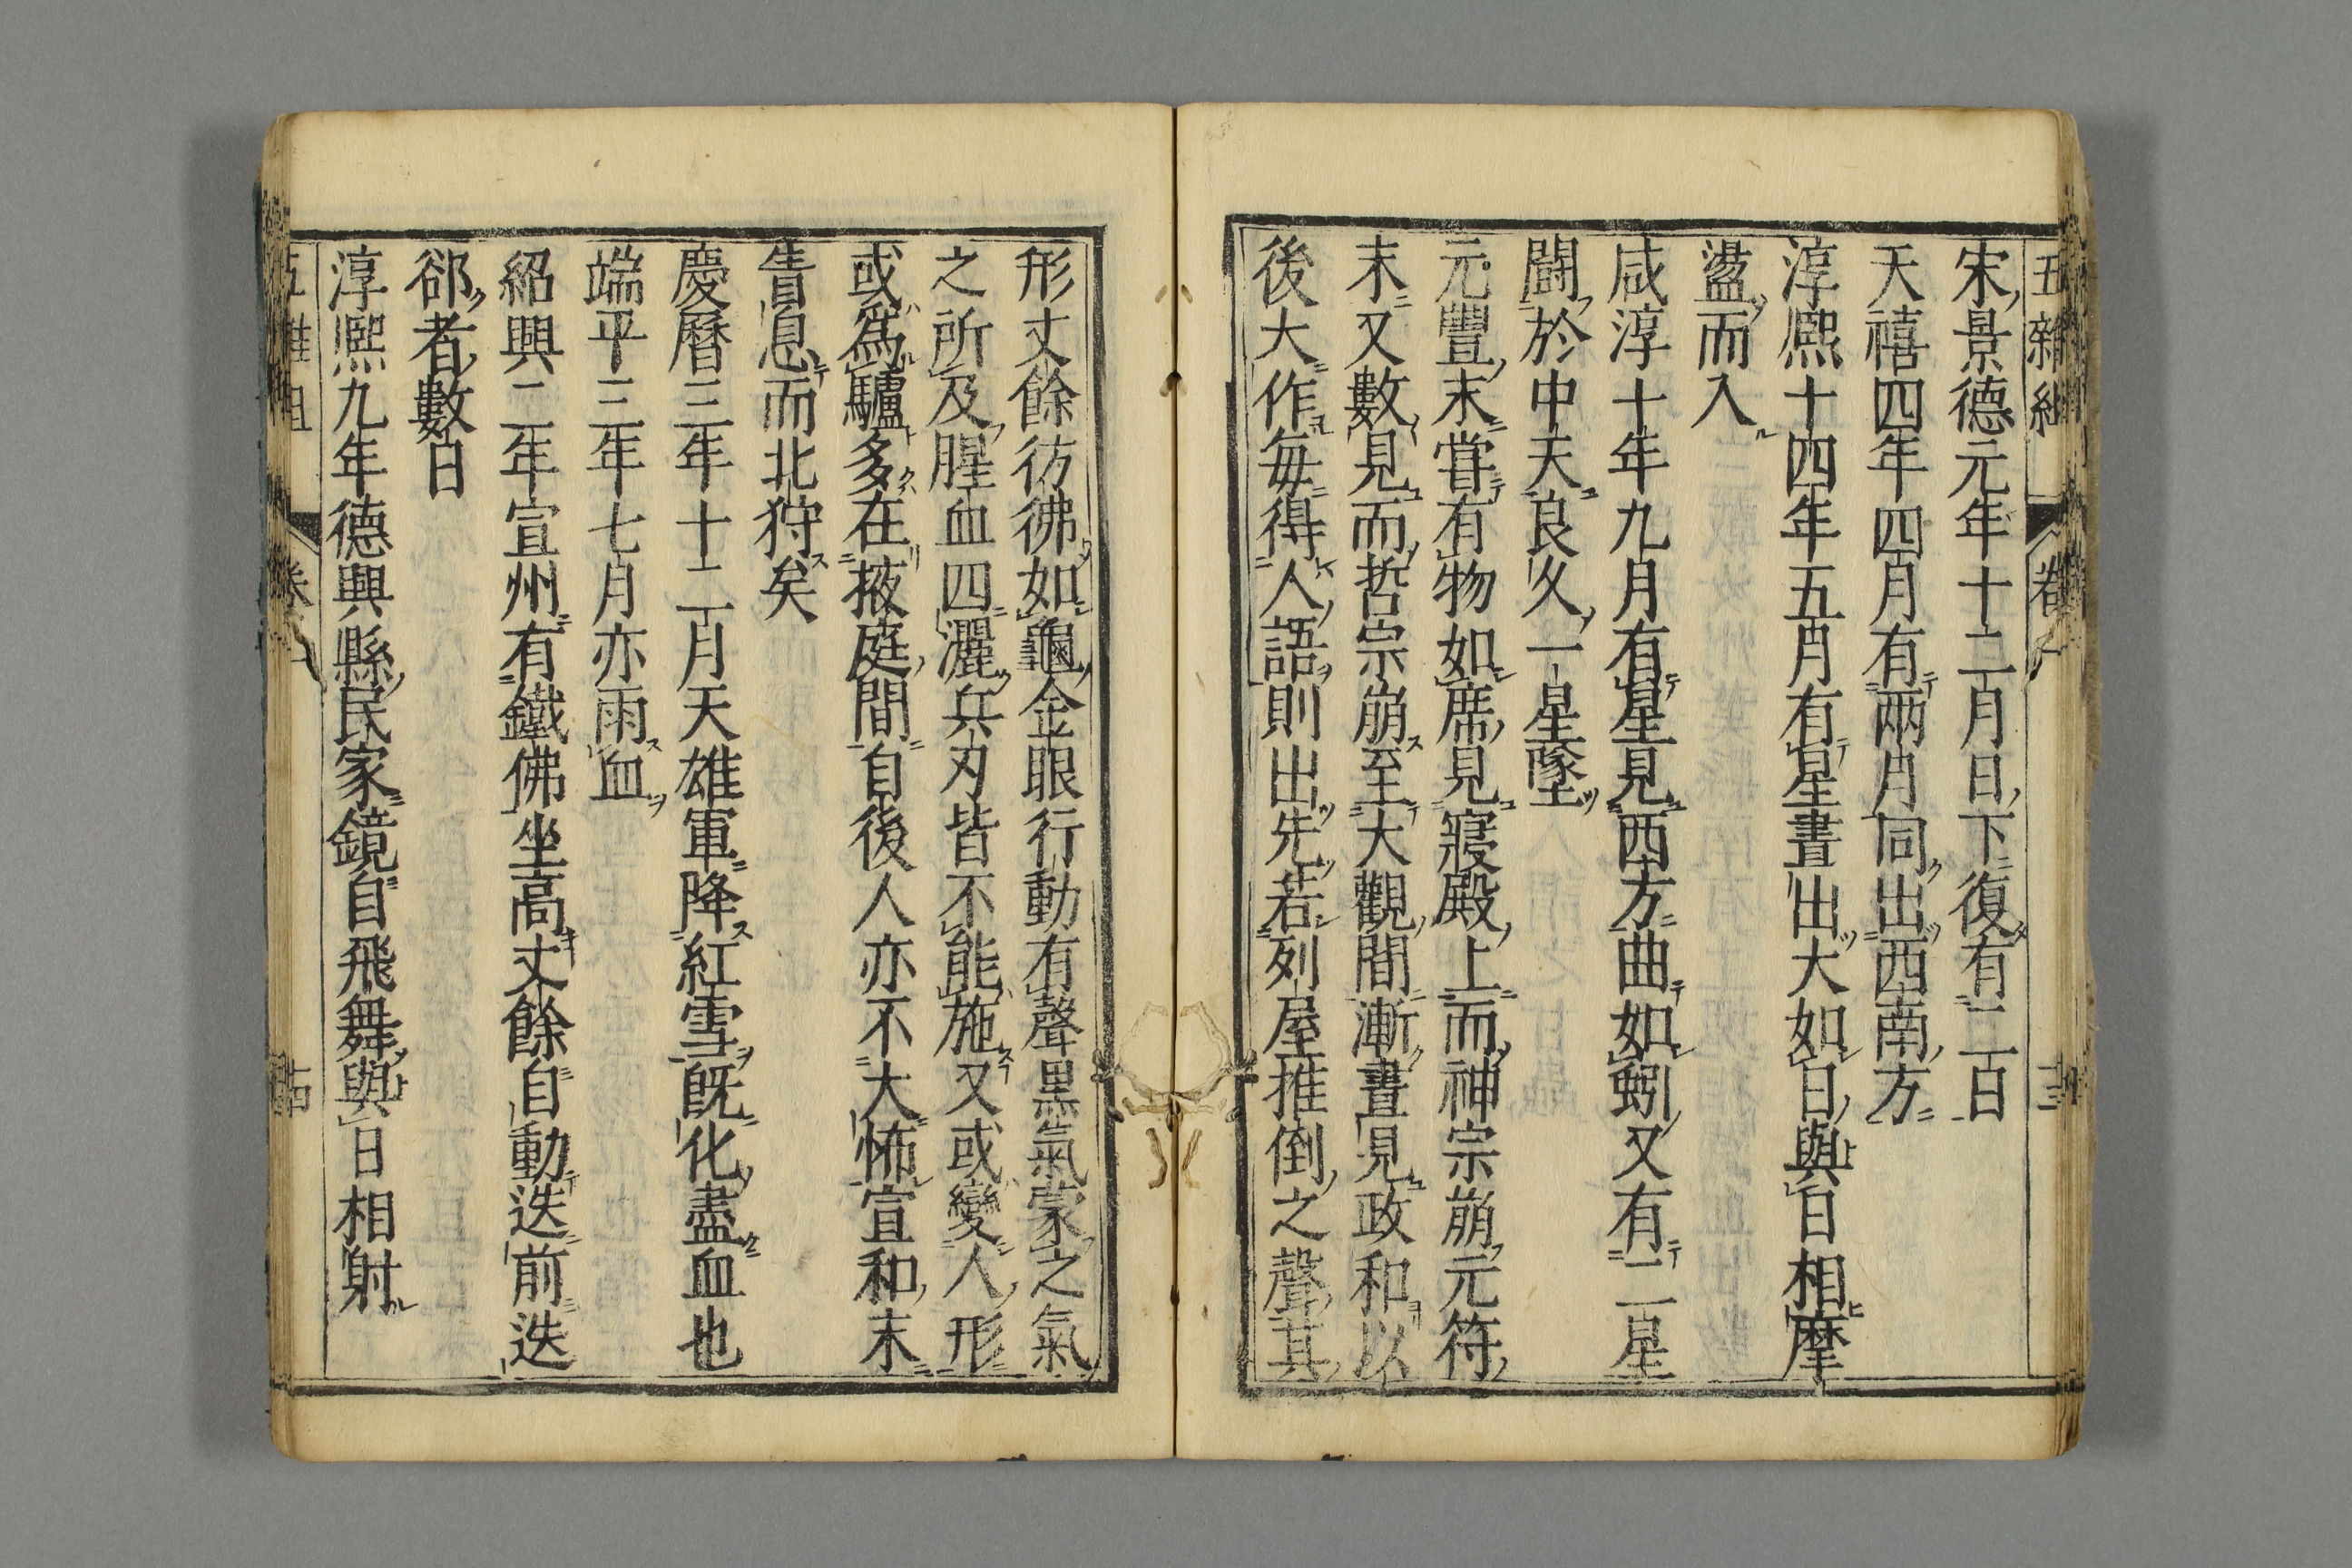 五雜組 卷一 十三
宋景德元年十二月日下復有二百
天禧四年四月有兩月同出西南方
淳熙十四年五月有星晝出大如日與日相摩
盪而入
咸淳十年九月有星見西方曲如蚓又有二星
鬪於中天良久一星墜
元豐末嘗有物如席見寢殿上而神宗崩元符
末又數見而哲宗崩至大觀間漸晝見政和以
後大作每得人語則出先若列屋推倒之聲其
形丈餘彷彿如龜金眼行動有聲黑氣蒙之氣
之所及腥血四灑兵刃皆不能施又或變人形
或為驢多在掖庭間自後人亦不大怖宣和末
眚息而北狩矣
慶曆三年十二月天雄軍降紅雪既化盡血也
端平三年七月亦雨血
紹興二年宣州有鐵佛坐高丈餘自動迭前迭
郤者數日
淳熙九年德興縣民家鏡自飛舞與日相射
五雜組 卷一 十四